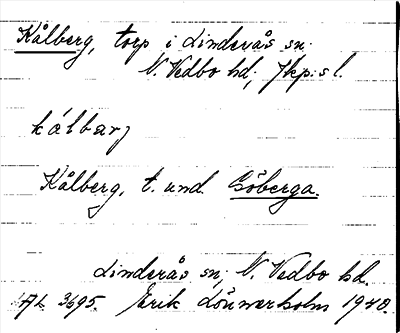 Kålberg, torp i Linderås sn.
N. Vedbo hd; Jkp:s l.
kålbarj
Kålberg, t. und. Göberga.
Linderås sn; N. Vedbo hd.
AL 3695. Erik Lönnerholm 1940.